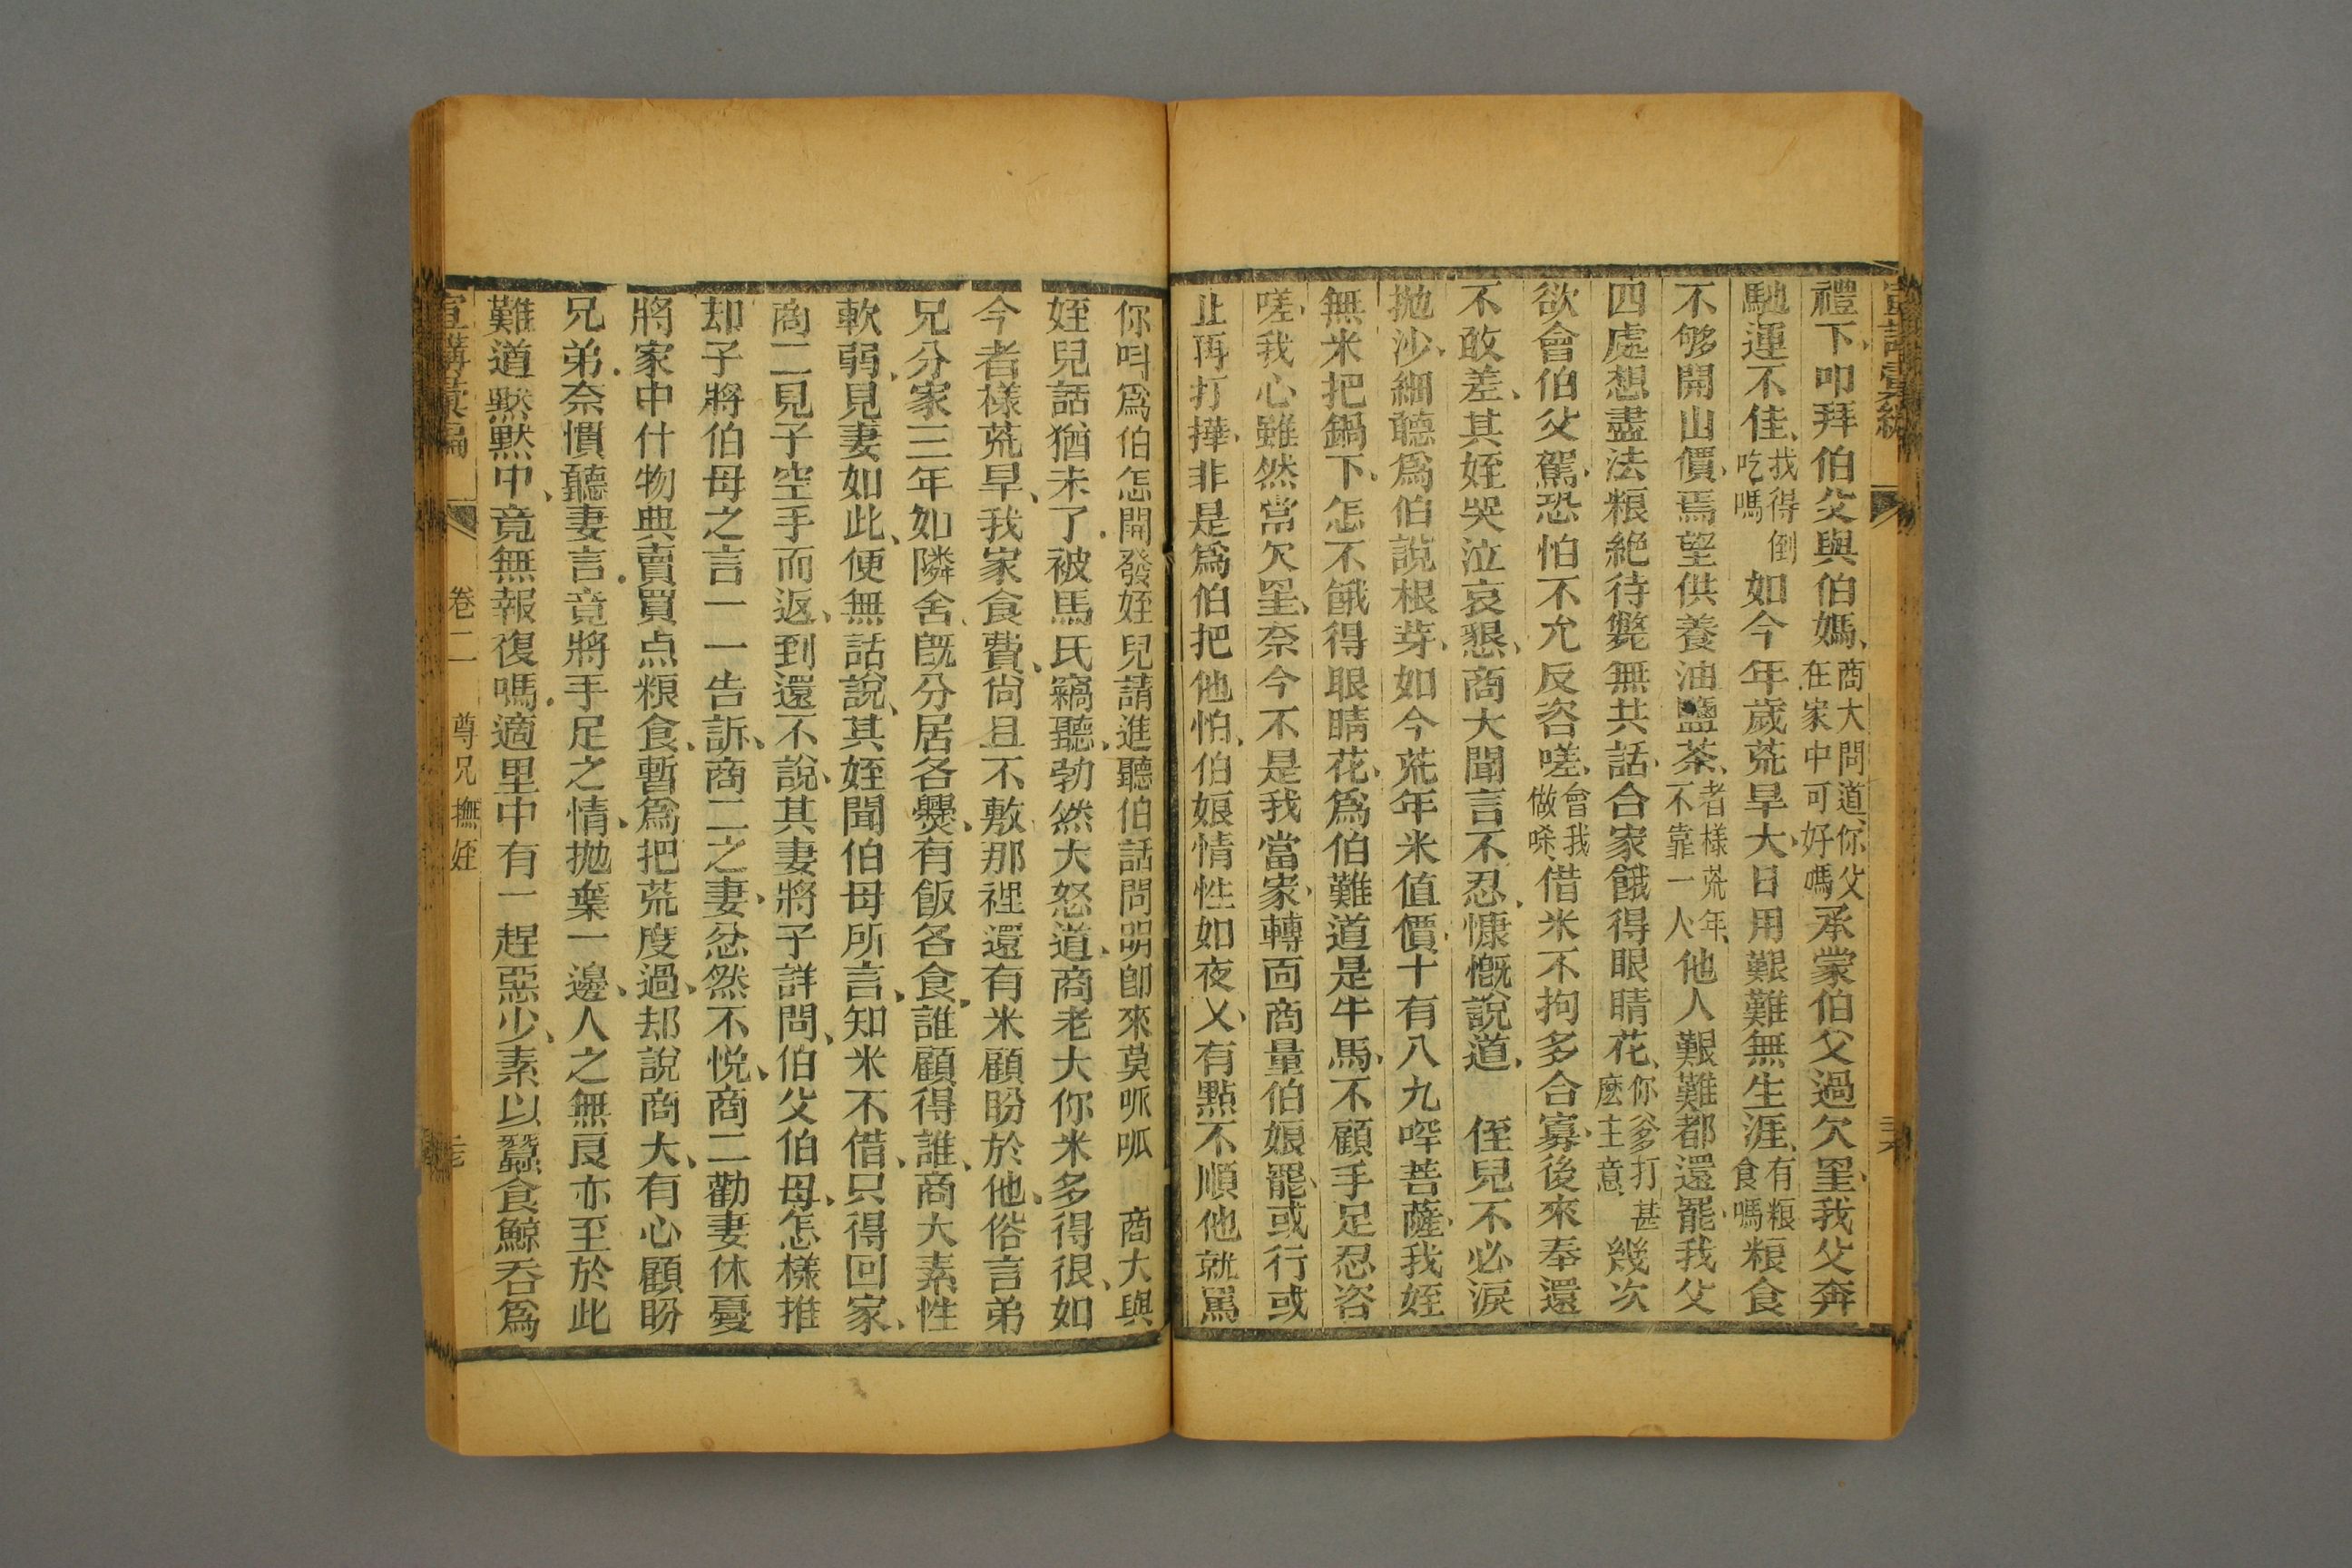 禮下、叩拜伯父與伯媽、商大問道、你父在家中可好嗎承蒙伯父過欠罣、我父奔
馳運不佳、找得倒吃嗎如今年歲荒旱、大日用艱難無生涯、有粮食嗎粮食
不够開山價、焉望供養油鹽茶、者樣荒年、不靠一人他人艱難都還罷、我父
四處想盡法粮絕待斃無共話、合家餓得眼睛花、你爹打甚麽主意幾次
欲會伯父駕、恐怕不允反咨嗟、會我做咊、借米不拘多合寡、後來奉還
不敢差、其姪哭泣哀懇、商大聞言不忍、慷慨說道、 侄兒不必淚
抛沙、細聽爲伯說根芽、如今荒年米值價、十有八九喤菩薩、我姪
無米把鍋下、怎不餓得眼睛花、爲伯難道是牛馬、不顧手足忍咨
嗟、我心雖然常欠罣、奈今不是我當家、轉面商量伯娘罷、或行或
止再打摔、非是爲伯把他怕、伯娘情性如夜乂、有點不順他就罵
你呌爲伯怎開發姪兒請進聽伯話問明卽來莫哌呱 商大與
姪兒話猶未了、被馬氏竊聽、勃然大怒道、商老大你米多得很、如
今者樣荒旱、我家食費、尙且不敷那裡還有米顧盼於他、俗言弟
兄分家三年如隣舍、旣分居各爨、有飯各食、誰顧得誰、商大素性
軟弱、見妻如此、便無話說、其姪聞伯母所言、知米不借、只得回家、
商二見子空手而返、到還不說、其妻將子詳問、伯父伯母、怎樣推
却子將伯母之言一一告訴、商二之妻、忿然不悅、商二勸妻休憂
將家中什物典賣買点粮食、暫爲把荒度過、却說商大、有心顧盼
兄弟、奈慣聽妻言、竟將手足之情、抛棄一邊、人之無良亦至於此
難道默默中、竟無報復嗎、適里中有一起惡少、素以蠶食鯨吞爲
宣講彙編 卷二 尊兄撫姪